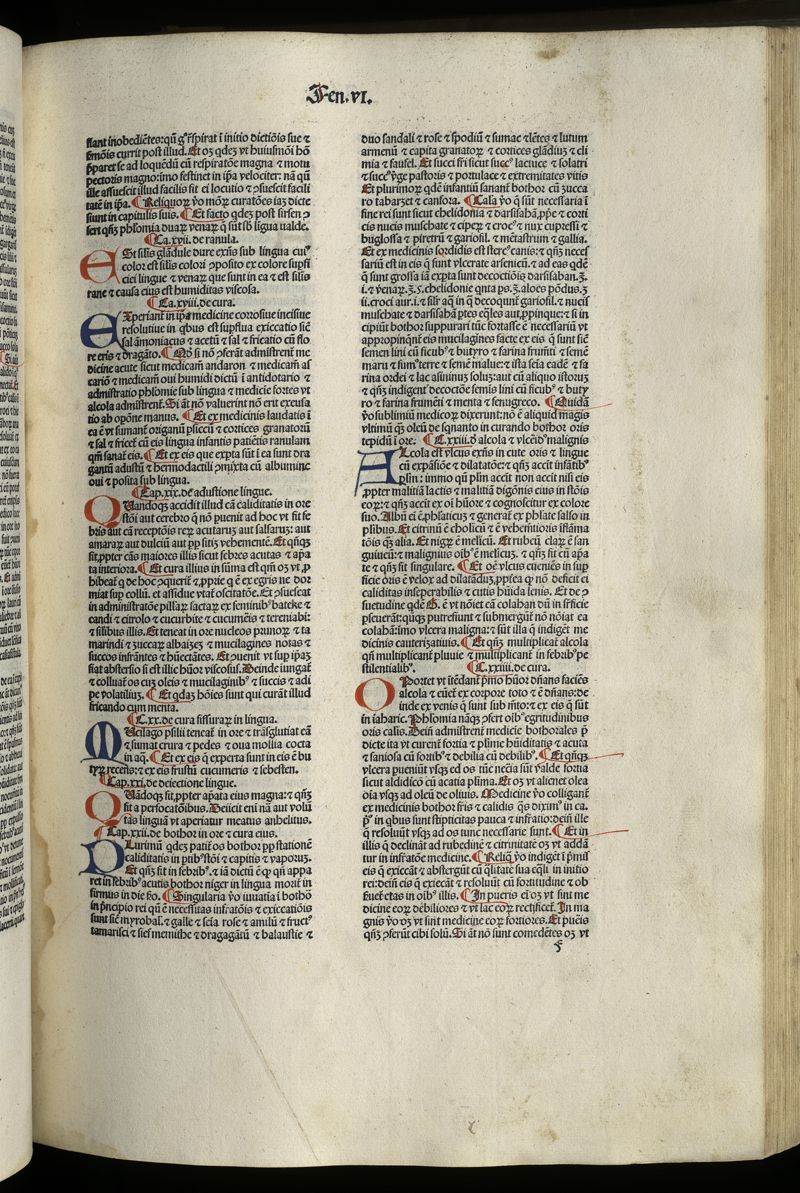 Fen.VI.
stant inobediẽtes: qñ respirat ĩ initio dictiõis sue ⁊
sermõis currit post illud. Et oꝫ qdeꝫ vt huiusmõi hõ
p̃paret se ad loquẽdũ cũ respiratõe magna ⁊ motu
pectoris magno: imo festinet in ip̃a velociter: nã qñ
ille assuescit illud facilis fit ei locutio ⁊ ɔsuescit facili
tatẽ in ip̃a. ¶ Reliquoꝝ ṽo moꝝ curatões iaꝫ dicte
sunt in capitulis suis. ¶ Et facto qdeꝫ post sirsen ɔ
fert qñꝫ phlomia duaꝝ venaꝝ q̃ sũt sb̃ lĩgua valde.
¶ Ca.xvii. de ranula.
ESt silis glãdule dure exñs sub lingua cuiꝰ
color est silis colori ɔposito ex colore supfi
ciei lingue ⁊ venaꝝ que sunt in ea ⁊ est silis
rane ⁊ causa eius est humiditas viscosa.
¶ Ca.xviii. de cura.
EXperiant̃ in ip̃a medicine corrosiue incisiue
resolutiue in qbus est supflua exiccatio sic̃
sal ãmoniacus ⁊ acetũ ⁊ sal ⁊ fricatio cũ flo
re eris ⁊ dragãto. ¶ si nõ ɔferãt admĩstrent̃ me
dicine acute sicut medicam̃ andaron ⁊ medicam̃ as
cariõ ⁊ medicam̃ oui humidi dictũ ĩ antidotario ⁊
admĩstratio phlomie sub lingua ⁊ medicie fortes vt
alcola admĩstrent̃. Si ãt nõ valuerint nõ erit excusa
tio ab opõne manus. ¶ Et ex medicinis laudatis ĩ
ea ẽ vt sumant̃ origanũ psiccũ ⁊ cortices granatorũ
⁊ sal ⁊ fricet̃ cũ eis lingua infantis patiẽtis ranulam
qm̃ sanat eis. ¶ Et ex eis que expta sũt ĩ ea sunt dra
gantũ adustũ ⁊ hermodactili ɔmixta cũ albumine
oui ⁊ posita sub lingua.
¶ Cap.xix. de adustione lingue.
QUandoqꝫ accidit illud eã caliditatis in ore
stõi aut cerebro q̃ nõ puenit ad hoc vt fit fe
bris aut eã receptõis reꝝ acutaꝝ aut salsaruꝫ: aut
amaraꝝ aut dulciũ aut pp sitiꝫ vehementẽ. Et qñqꝫ
fit ꝓpter eãs maiores illis sicut febres acutas ⁊ apa
ta interiora. ¶ Et cura illius in sũma est qm̃ oꝫ vt ꝓ
hibeat̃ q̃ de hoc ɔquerit̃ ⁊ ꝓprie q̃ ẽ ex egris ne dor
miat sup collũ. et assidue vtat̃ oscitatõe. Et ɔsuescat
in administratõe pillaꝝ factaꝝ ex seminibꝰ bateke ⁊
candi ⁊ citrolo ⁊ cucurbite ⁊ cucumeris ⁊ tereniabi:
⁊ silibus illis. Et teneat in ore nucleos prunoꝝ ⁊ ta
marindi ⁊ zuccaꝝ alhaizeꝫ ⁊ mucilagines notas ⁊
succos infrãntes ⁊ hũectãtes. Et ɔuenit vt sup ip̃aꝫ
fiat abstersio si est illic hũor viscosus. Deinde iungat̃
⁊ colluat̃ os cuꝫ oleis ⁊ mucilaginibꝰ ⁊ succis ⁊ adi
pe volatiliuꝫ. ¶ Et qdaꝫ hõies sunt qui curãt illud
fricando cum menta.
¶ C.xx. de cura fissuraꝝ in lingua.
MUcilago psilii teneat̃ in ore ⁊ trãsglutiat̃ eã
⁊ sumat crura ⁊ pedes ⁊ oua mollia cocta
in aq̃. ¶ Et ex eis q̃ experta sunt in eis ẽ bu
tyꝝ recens: ⁊ ex eis frustũ cucumeris ⁊ sebesten.
¶ Cap.xxi. de deiectione lingue.
QUãdoqꝫ fit ꝓpter apata eius magna: ⁊ qñꝫ
fit a perfocatõibus. Deiicit̃ eni nã aut volũ
tas linguã vt aperiatur meatus anhelitus.
¶ Cap.xxii. de bothor in ore ⁊ cura eius.
PLurimũ qdeꝫ patit̃ os bothor pp stationẽ
caliditatis in ptibꝰ stõi ⁊ capitis ⁊ vaporuꝫ.
Et qñꝫ fit in febribꝰ. ⁊ iã dictũ ẽ q̃ qñ appa
ret in febribꝰ acutis bothor niger in lingua morit̃ in
firmus in die sc̃o. ¶ Singularia ṽo iuuatia ĩ bothõ
in p̃ncipio rei qñ ẽ necessitas infratõis ⁊ exiccatiõis
sunt sic̃ myrobal. ⁊ galle ⁊ scia rose ⁊ amilũ ⁊ fructꝰ
tamarisci ⁊ sief memithe ⁊ dragagãtũ ⁊ balaustie ⁊
duo sandali ⁊ rose ⁊ spodiũ ⁊ sumac ⁊ lẽtes ⁊ lutum
armenũ ⁊ capita granatoꝝ ⁊ cortices glãdiuꝫ ⁊ cli
mia ⁊ faufel. Et succi fri sicut succꝰ lactuce ⁊ solatri
⁊ succꝰ vge pastoris ⁊ portulace ⁊ extremitates vitis
Et plurimoꝝ qdẽ infantiũ sanant̃ bothor cũ zucca
ro tabarzet ⁊ canfora. ¶ Cala ṽo q̃ sũt necessaria ĩ
fine rei sunt sicut chelidonia ⁊ darsisahã, ꝓpe ⁊ corti
cis nucis muscbate ⁊ cipeꝝ ⁊ crocꝰ ⁊ nux cupressi ⁊
buglossa ⁊ piretrũ ⁊ gariofil. ⁊ mẽtastrum ⁊ gallia.
Et ex medicinis sordidis est stercꝰ canis: ⁊ qñꝫ neces
sariũ est in eis q̃ sunt vlcerate arsenicũ. ⁊ ad eas qdẽ
q̃ sunt grossa iã expta sunt decoctiõis darsisahan.
i. ⁊ venaꝝ. chelidonie qnta aloes põdus.
ii. croci aur.i. ⁊ silr̃ aq̃ in q̃ decoqunt̃ gariofil. ⁊ nucis
muscbate ⁊ darsisahã ptes eq̃les aut, ꝓpinque: ⁊ si in
cipiũt bothor suppurari tũc fortasse ẽ necessariũ vt
appropinqnẽt eis mucilagines facte ex eis q̃ sunt sic̃
semen lini cũ ficubꝰ ⁊ butyro ⁊ farina frumẽti ⁊ semẽ
maru ⁊ sumꝰ terre ⁊ semẽ malue: ⁊ ista scia eadẽ ⁊ fa
rina ordei ⁊ lac asininuꝫ soluꝫ: aut cũ aliquo istoruꝫ
⁊ qñꝫ indigent̃ decoctõe semĩs lini cũ ficubꝰ ⁊ buty
ro ⁊ farina frumẽti ⁊ menta ⁊ fenugreco. ¶ Quidã
ṽo sublimiũ medicoꝝ dixerunt: nõ ẽ aliquid magis
vltimũ qꝫ oleũ de sqnanto in curando bothor oris
tepidũ ĩ ore. ¶ C.xxiii. d̃ alcola ⁊ vlcẽibꝰ malignis
ALcola est vlcus exñs in cute oris ⁊ lingue
cũ expãsiõe ⁊ dilatatõe: ⁊ qñꝫ accit infãtibꝰ
plm̃: immo qñ plm̃ accit̃ non accit nisi eis
,ꝓpter malitiã lactis ⁊ malitiã digõnis eius in stõis
eoꝝ: ⁊ qñꝫ accit ex oi hũore ⁊ cognoscitur ex colore
suo. Albũ ei ẽ phlaticuꝫ ⁊ generat̃ ex phlate salso in
plibus. Et citrinũ ẽ cholicũ ⁊ ẽ vehemĩtioris iflãma
tõis qꝫ alia. Et nigꝝ ẽ melicũ. Et rubeũ claꝝ ẽ san
guineũ: ⁊ malignius oibꝰ ẽ melicuꝫ. ⁊ qñꝫ fit cũ apa
te ⁊ qñꝫ fit singulare. ¶ Et oẽ vlcus eueniẽs in sup
ficie oris ẽ velox ad dilatãduꝫ, ppsea q̃ nõ deficit ei
caliditas inseperabilis ⁊ cutis hũida lenis. Et de ɔ
suetudine qdẽ G. ẽ vt nõiet eã colahan dũ in sr̃ficie
pseuerãt: quꝫ putresiunt ⁊ submergũt̃ nõ nõiat ea
colahã: imo vlcera maligna: ⁊ sũt illa q̃ indigẽt me
dicinis cauterizatiuis. ¶ Et qñꝫ multiplicat̃ alcola
qñ multiplicant̃ pluuie ⁊ multiplicant̃ in febribꝰ pe
stilentialibꝰ. ¶ C.xxiiii. de cura.
OPortet vt itẽdant̃ p̃mo hũor dñans faciẽs
alcola ⁊ euet̃ ex corpore toto ⁊ ẽ dñans: de
inde ex venis q̃ sunt sub mẽto: ⁊ ex eis q̃ sũt
in iaharic. Phlomia nãqꝫ ɔfert oibꝰ egritudinibus
oris calis. Dein admĩstrent̃ medicie bothorales p̃
dicte ita vt curent̃ fortia ⁊ plime hũiditatis ⁊ acuta
⁊ saniosa cũ fortibꝰ ⁊ debilia cũ debilibꝰ. ¶ Et qñqꝫ
vlcera pueniũt vsqꝫ ad os tũc neciã sũt valde fortia
sicut aldidico cũ acatia plima. Et oꝫ vt alienet̃ olea
oia vsqꝫ ad oleũ de oliuis. Medicine ṽo colligant̃
ex medicinis bothor fris ⁊ calidis q̃s diximꝰ in ea.
pꝰ in qbus sunt stipticitas pauca ⁊ infratio: dein ille
q̃ resoluũt vsqꝫ ad os tunc necessarie sunt. ¶ Et in
illis q̃ declinãt ad rubedinẽ ⁊ citrinitatẽ oꝫ vt addã
tur in infratõe medicine. ¶ Reliq̃ ṽo indigẽt ĩ p̃mis
eis q̃ exiccãt ⁊ abstergũt cũ q̃litate sua eq̃li in initio
rei: dein eis q̃ exiccãt ⁊ resoluũt cũ fortitudine ⁊ ob
fuet̃ etas in oibꝰ illis. ¶ In pueris ei oꝫ vt sint me
dicine eoꝝ debiliores ⁊ vt lac eoꝝ rectificet̃. In ma
gnis ṽo oꝫ vt sint medicine eoꝝ fortiores. Et pueris
qñꝫ ɔferũt cibi solũ. Si ãt nõ sunt comedẽtes oꝫ vt